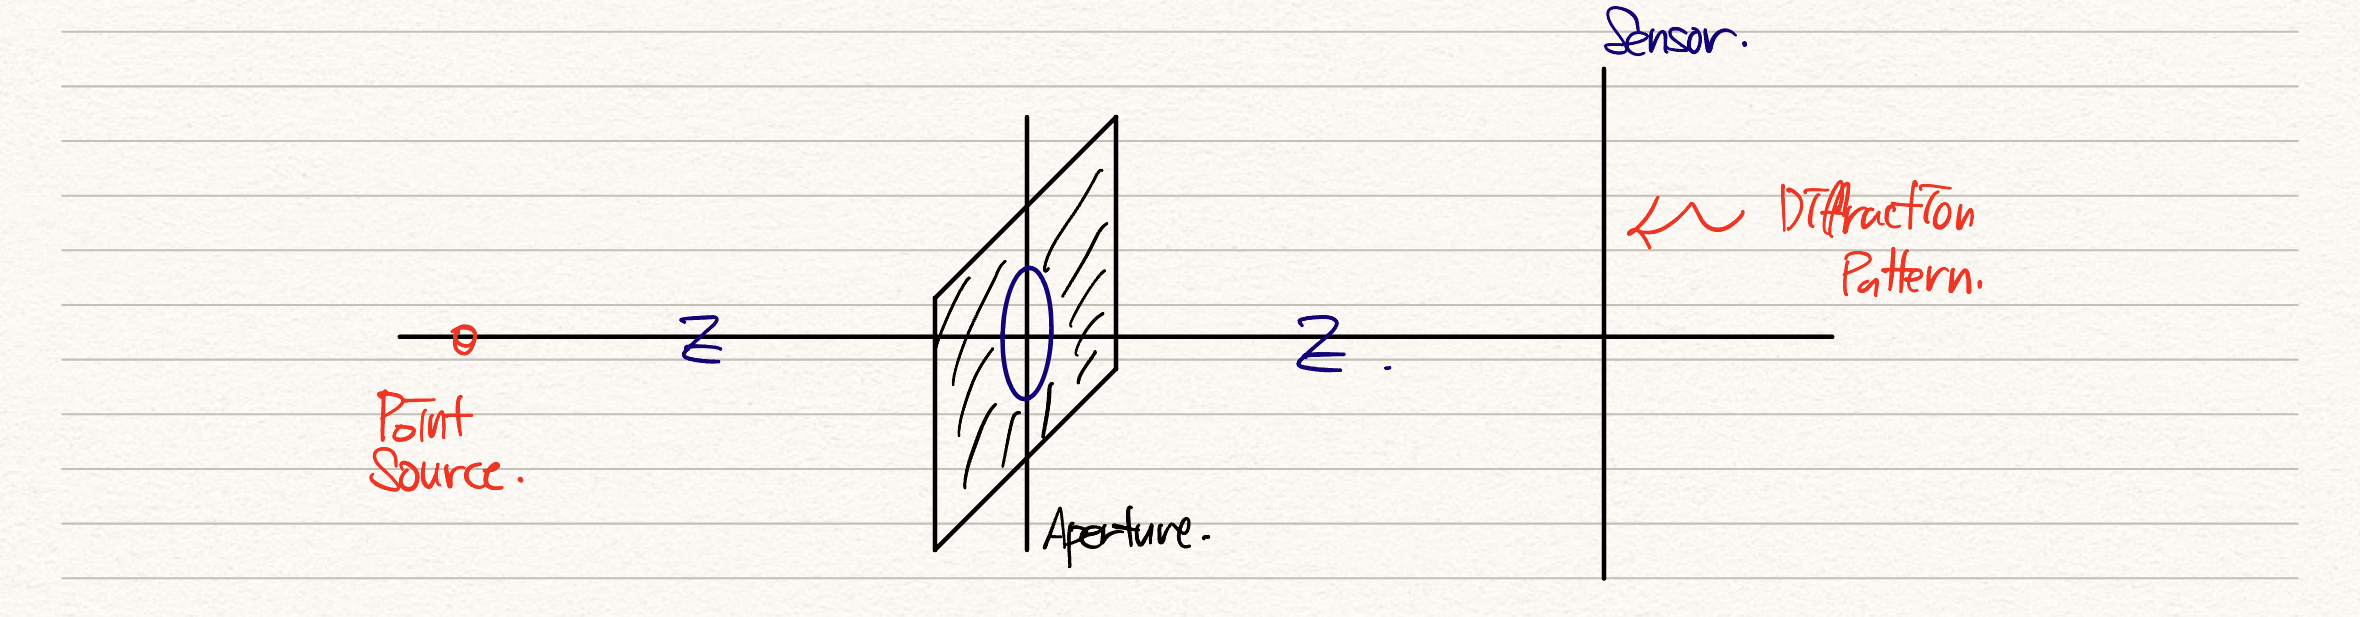 Sensor.
Diffraction
Pattern.
Z
Z.
Point
Source.
Aperture.